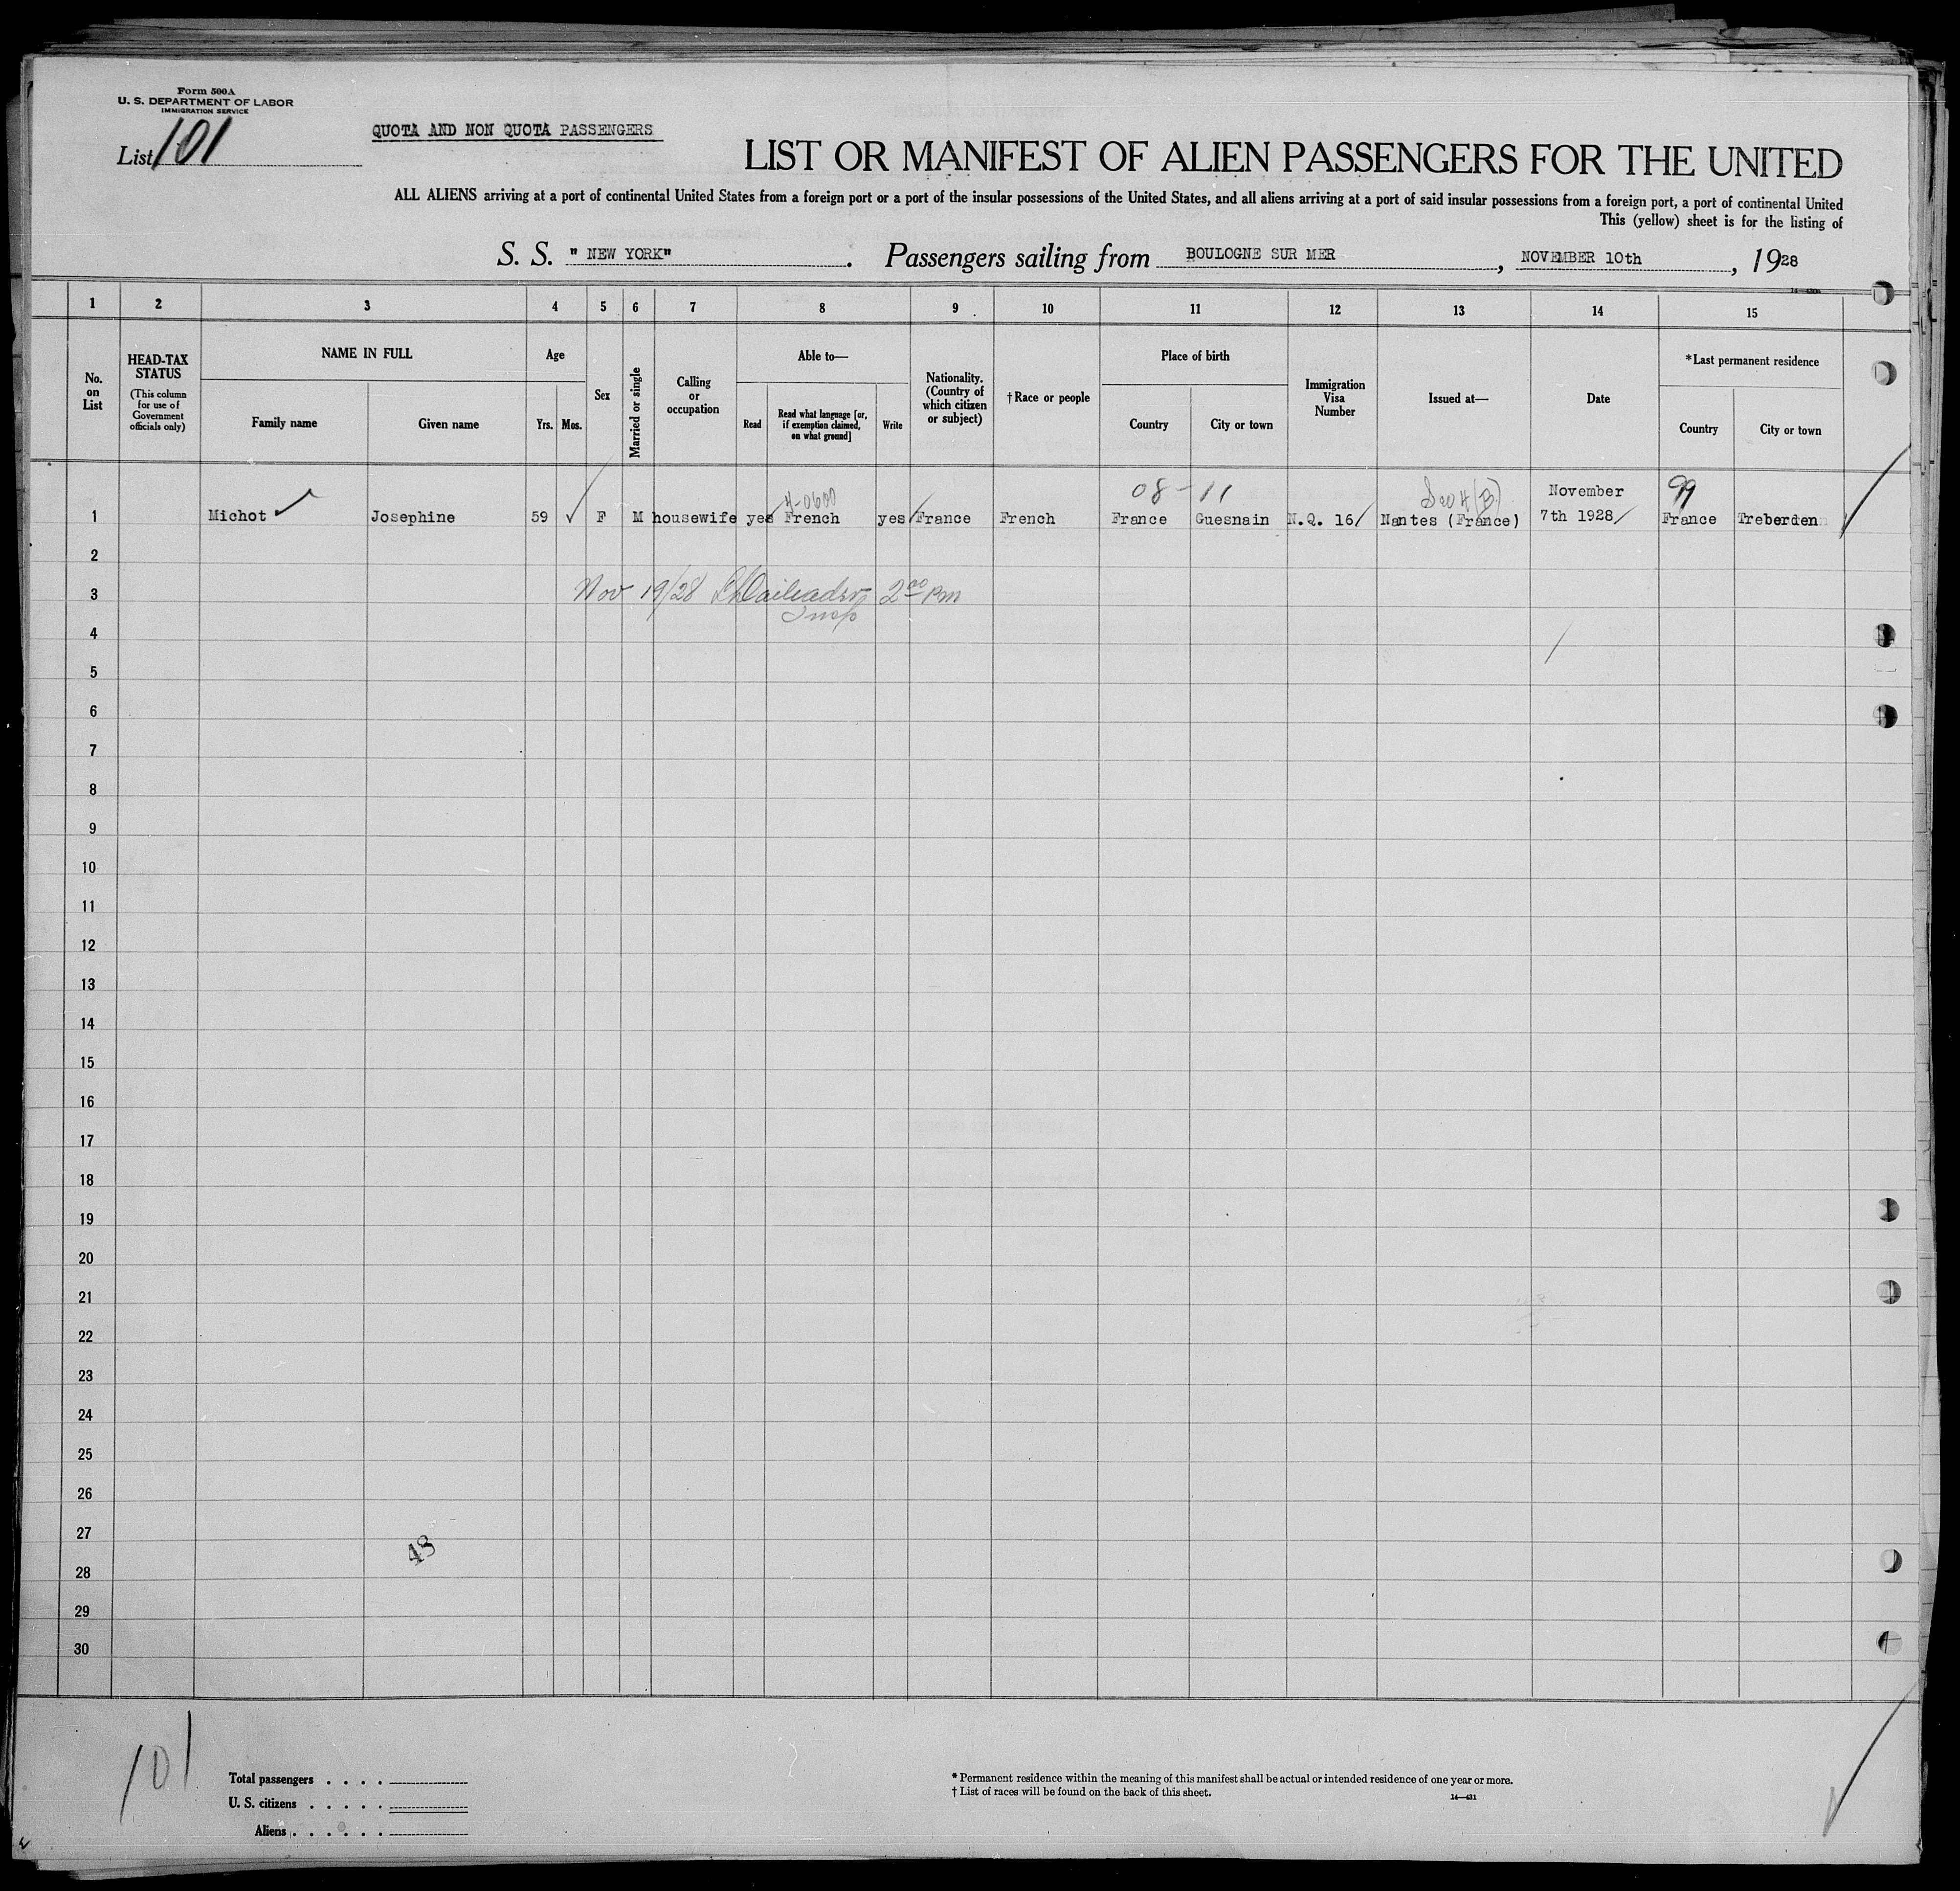 Form 500A
U. S. DEPARTMENT OF LABOR
IMMIGRATION SERVICE
List 101
QUOTA AND NON QUOTA PASSENGERS
LIST OR MANIFEST OF ALIEN PASSENGERS FOR THE UNITED
ALL ALIENS arriving at a port of continental United States from a foreign port or a port of the insular possessions of the United States, and all aliens arriving at a port of said insular possessions from a foreign port, a port of continental United
This (yellow) sheet is for the listing of
S. S. "NEW YORK". Passengers sailing from BOULOGNE SUR MER, NOVEMBER 10th, 1928
1 2 3 4 5 6 7 8 9 10 11 12 13 14 15
No. on List
HEAD-TAX STATUS
(This column for use of Government officials only)
NAME IN FULL
Family name
Given name
Age
Yrs.
Mos.
Sex
Married or single
Calling or occupation
Able to—
Read
Read what language [or, if exemption claimed, on what ground]
Write
Nationality. (Country of which citizen or subject)
†Race or people
Place of birth
Country
City or town
Immigration Visa Number
Issued at—
Date
*Last permanent residence
Country
City or town
4-0600
08-11
99
1 Michot ✓ Josephine 59 ✓ F M housewife yes French yes France French France Guesnain N.Q. 16 Nantes (France) November 7th 1928 France Treberden
2
3 Nov 19/28 200 Pm
Insp
4
5
6
7
8
9
10
11
12
13
14
15
16
17
18
19
20
21
22
23
24
25
26
27
48
28
29
30
101
Total passengers . . . .
U. S. citizens . . . . .
Aliens . . . . . .
* Permanent residence within the meaning of this manifest shall be actual or intended residence of one year or more.
† List of races will be found on the back of this sheet.
14—431